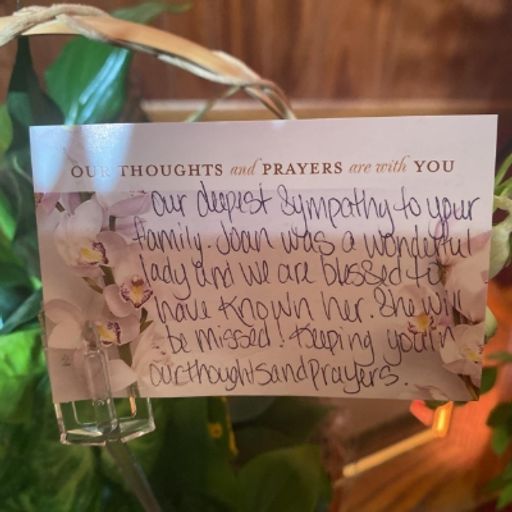 OUR THOUGHTS and PRAYERS are with YOU
Our deepest Sympathy to your
family. Joan was a wonderful
lady and we are blessed to
have known her. She will
be missed! Keeping you in
our thoughts and prayers.